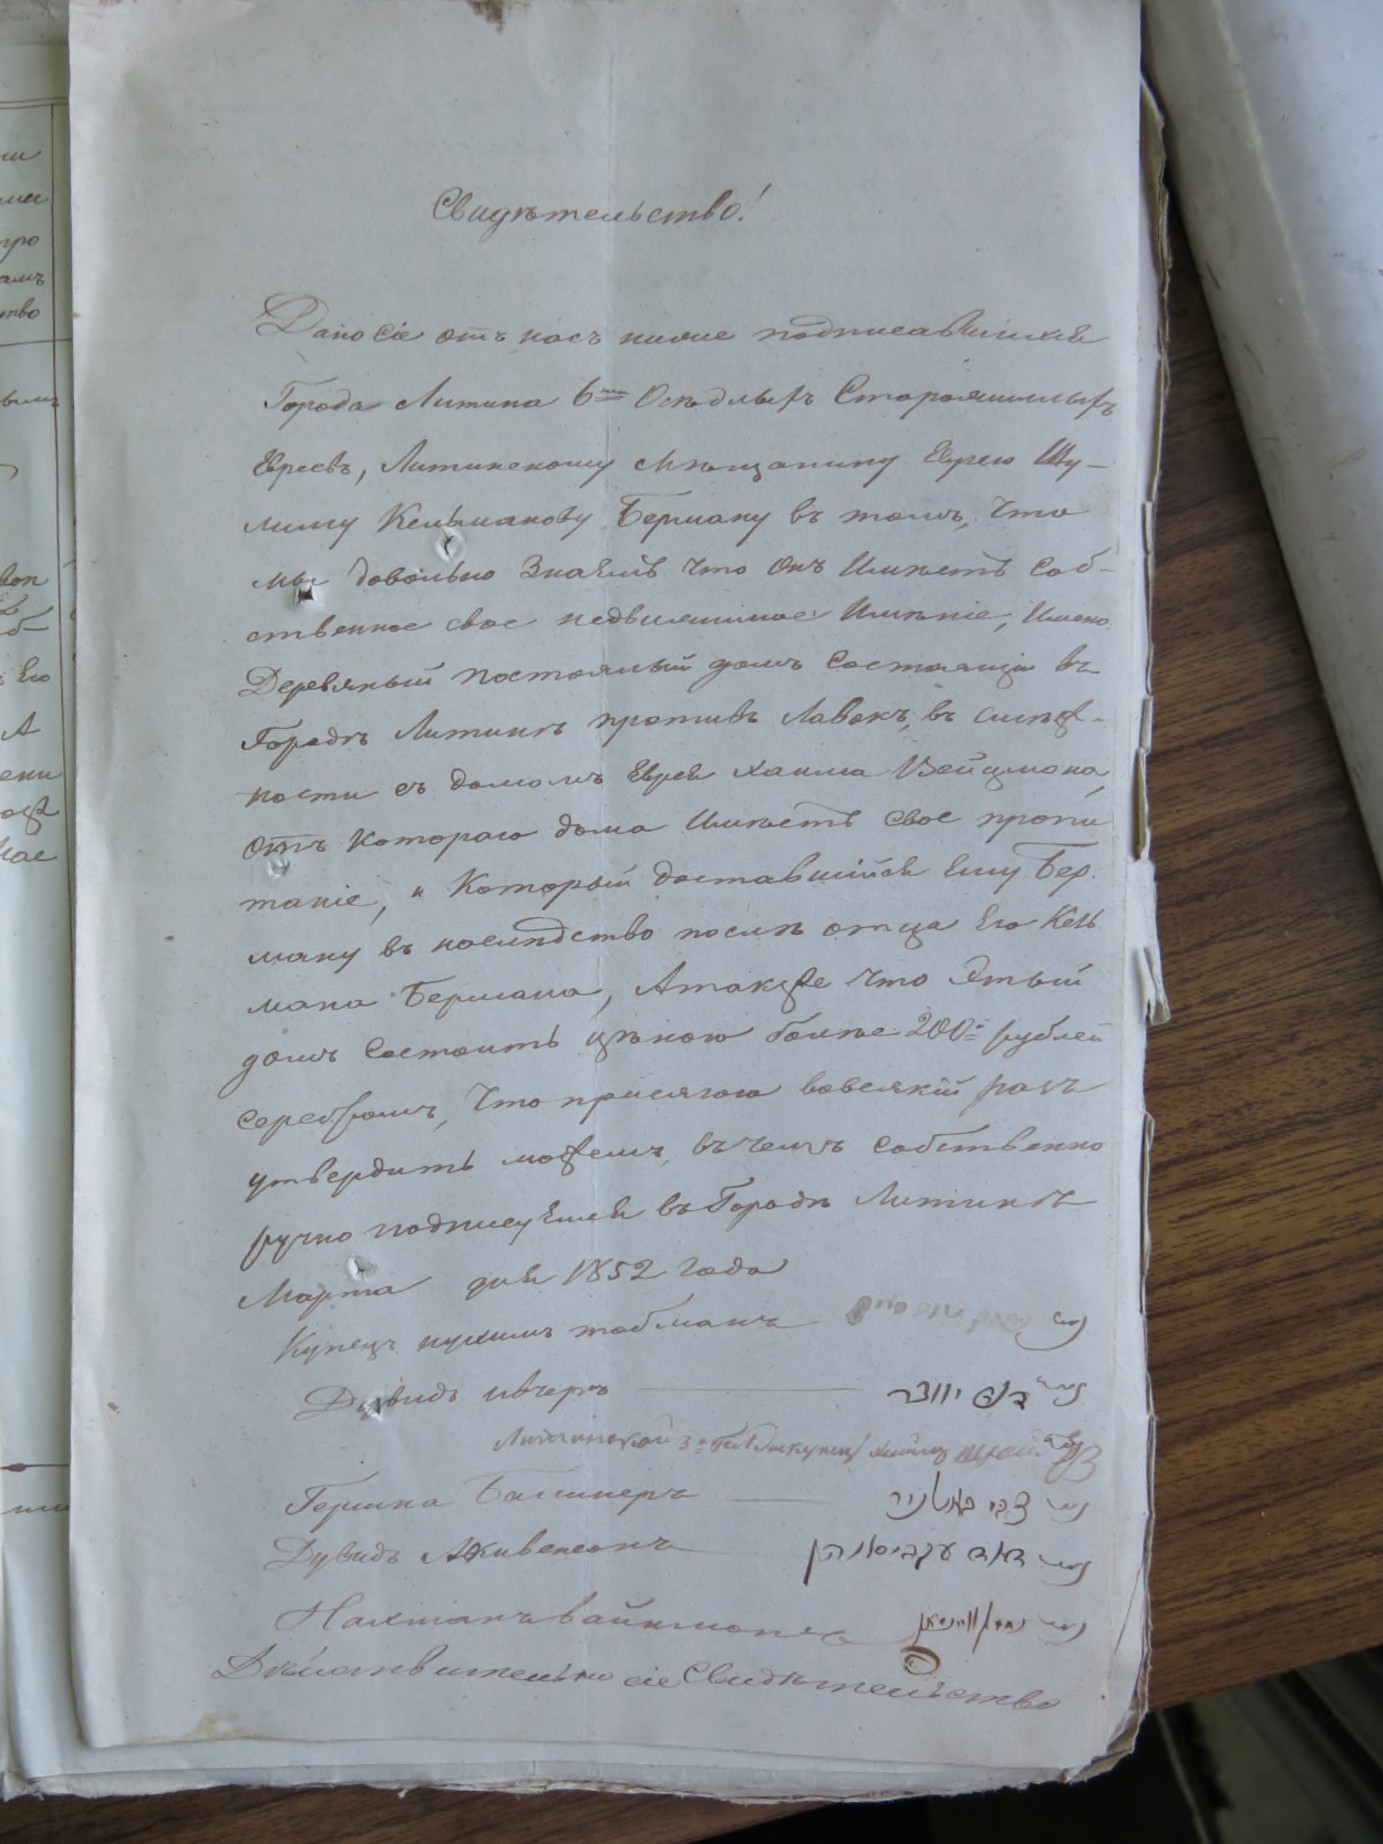 Свидѣтельство!
Дано сіе отъ насъ ниже подписавшихся
Города Литина 6ти Осѣдлыхъ Старожилыхъ
Евреевъ, Литинскому мѣщанину Еврею Шу-
лиму Кельманову Берману въ томъ, Что
мы довольно Знаемъ Что Онъ Имѣетъ Соб-
ственное свое недвижимое Имѣніе, Имено
Деревяный постоялый домъ Состоящій въ
Городѣ Литинѣ противъ Лавокъ, въ смѣж-
ности съ домомъ Еврея Хаима Вейцмана,
Отъ Котораго дома Имѣетъ Свое пропи
таніе, и Который доставшійся Ему Бер.
ману въ наслѣдство послѣ отца Его Кель
мана Бермана, Атакже Что Этый
домъ Состоитъ цѣною болѣе 200 рублей
Серебромъ, Что присягою вовсякій разъ
утвердить можемъ, въ чемъ Собственно
ручно подписуемся въ Городѣ Литинѣ
Марта дня 1852 года
Купецъ нухимъ товманъ נאום
Дувидъ ивчеръ נאום
Литинской 3й Гил
Гершка Баштнеръ נאום צבי באשטניר
Дувидъ Акивенсонъ נאום דוד עקביסאהן
Нахманъ вайнманъ נאום נחמן וויינמאן
Дѣйствительно сіе Свидѣтельство
ши
про
амъ
тво
Его
А